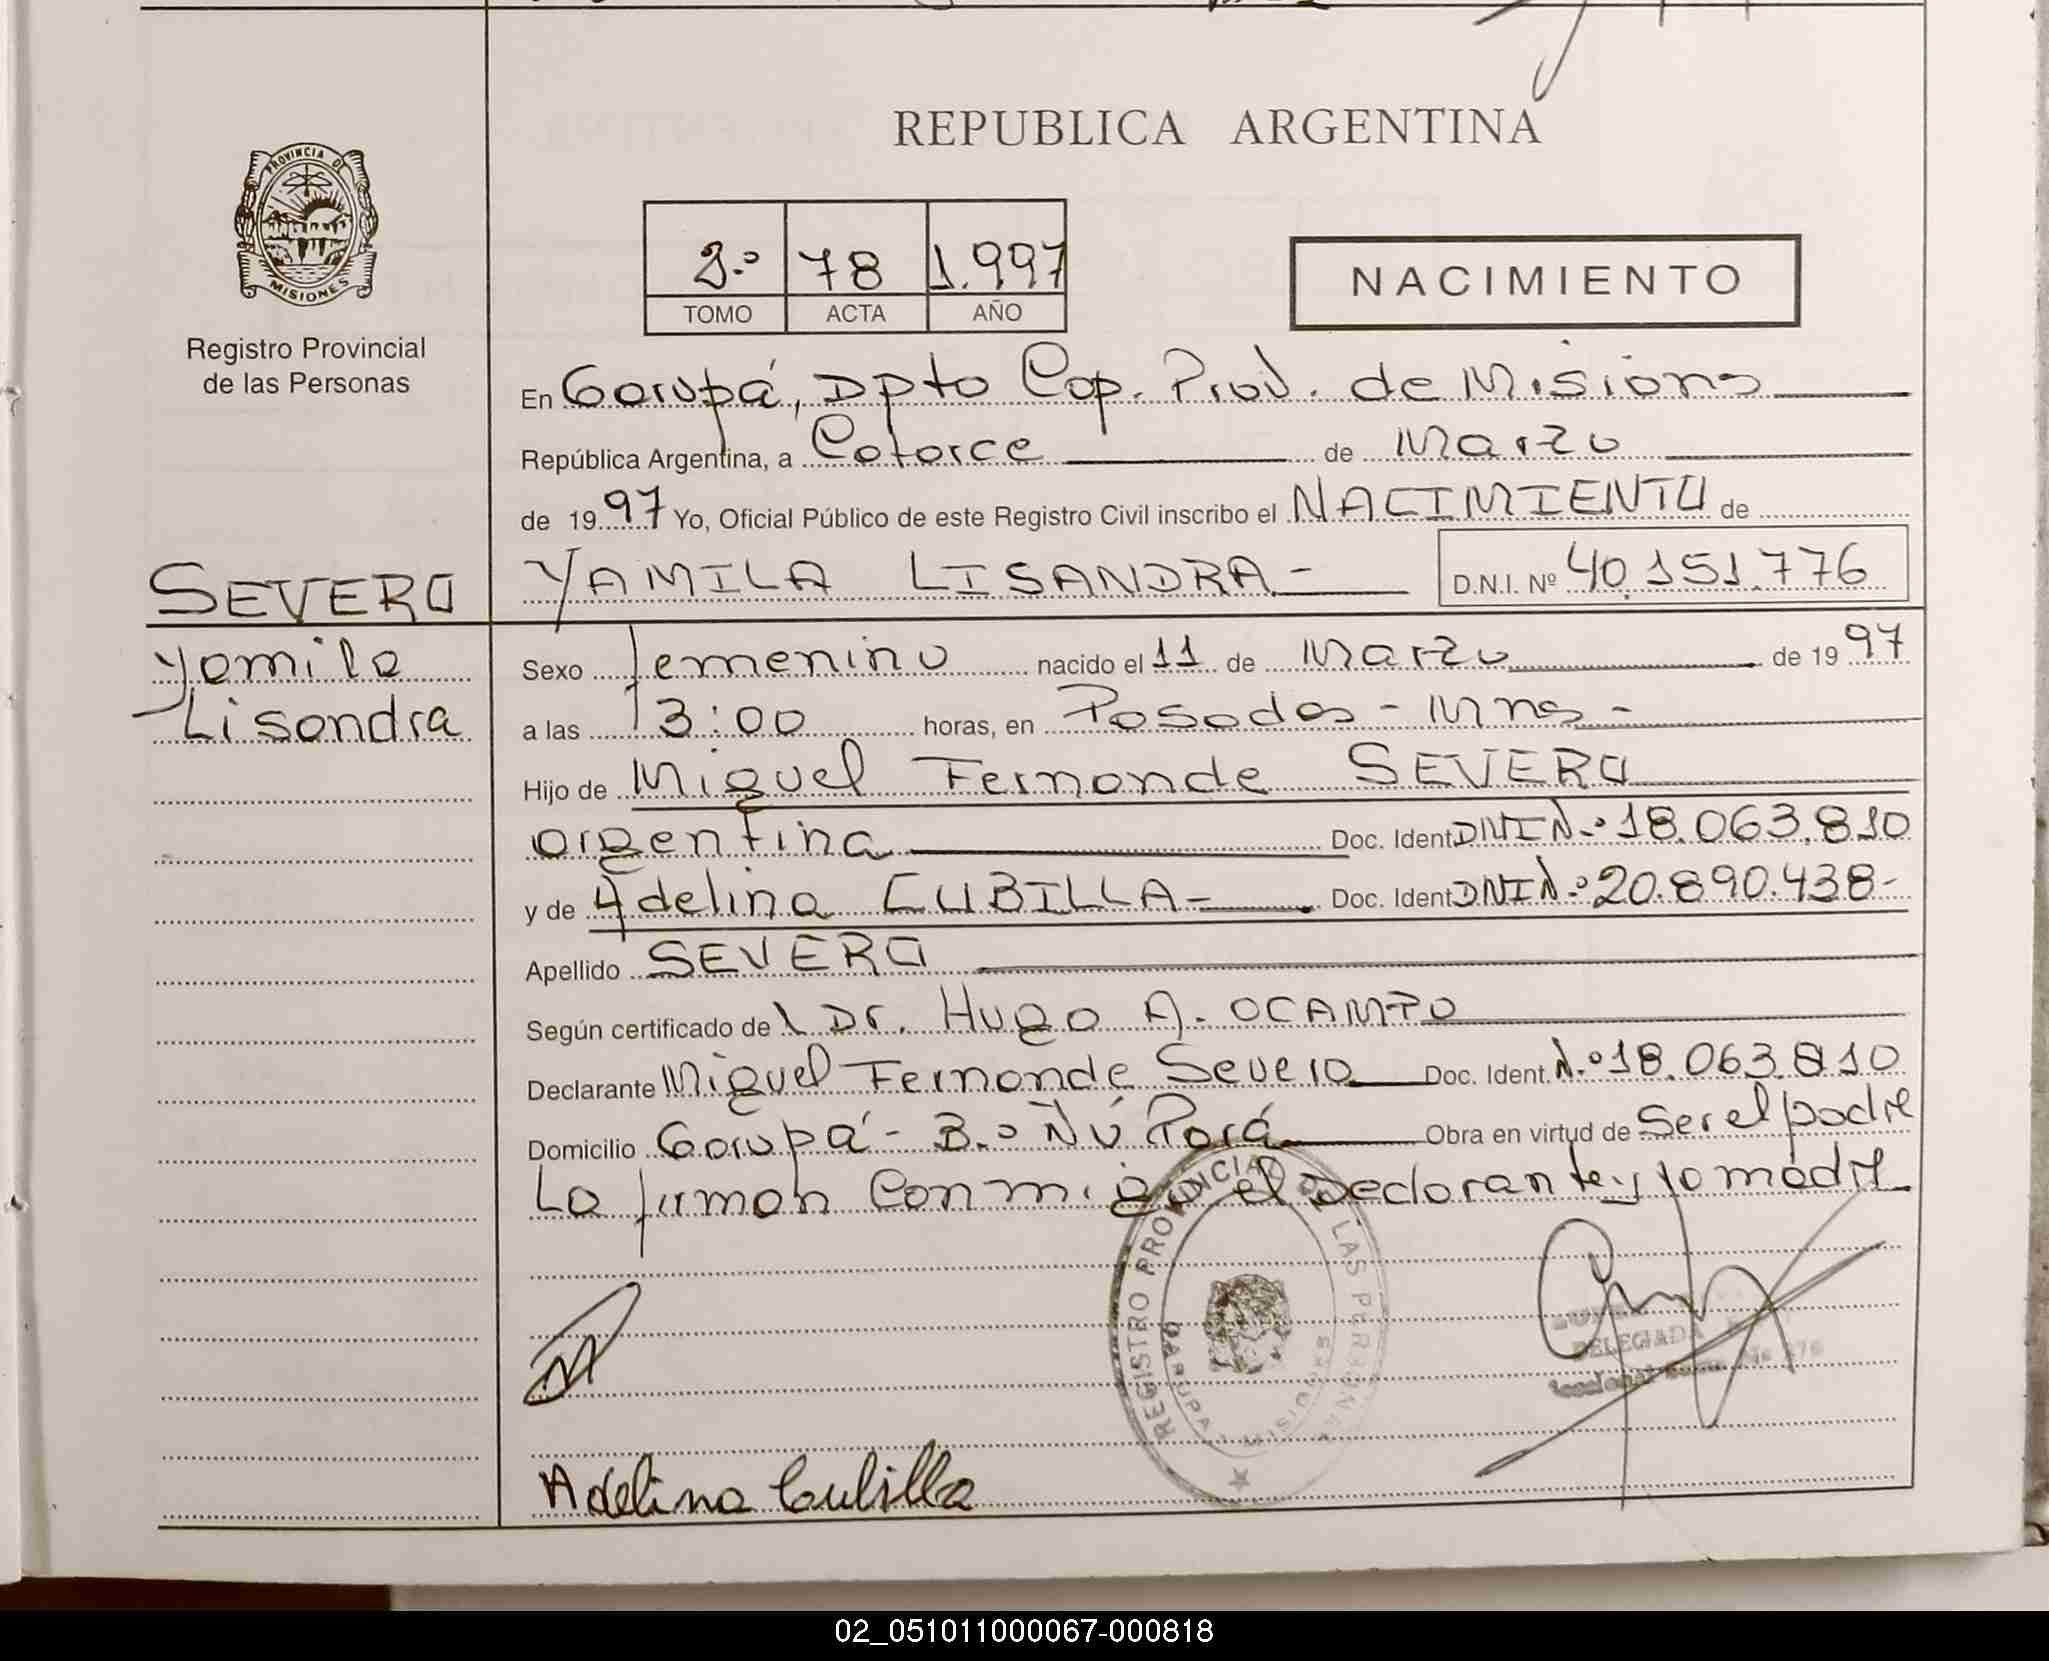 REPUBLICA ARGENTINA
PROVINCIA DE
MISIONES
Registro Provincial
de las Personas
2.º 78 1.997
TOMO ACTA AÑO
NACIMIENTO
En Garupá, Dpto Cap. Prov. de Misions
República Argentina, a Catorce de Marzo
de 1997 Yo, Oficial Público de este Registro Civil inscribo el NACIMIENTO de
SEVERO
YAMILA LISANDRA- D.N.I. Nº 40.151.776
Yamila
Lisandra
Sexo femenino nacido el 11 de Marzo de 1997
a las 13:00 horas, en Posadas - Mnes -
Hijo de Miguel Fernande SEVERO
argentina Doc. Ident DNI N.º 18.063.810
y de Adelina CUBILLA- Doc. Ident DNI N.º 20.890.438-
Apellido SEVERO
Según certificado de l Dr. Hugo A. OCAMPO
Declarante Miguel Fernande Severo Doc. Ident. N.º 18.063.810
Domicilio Garupá - B.º Ñú Porá Obra en virtud de Ser el padre
La firman Conmigo el Declarante y la madre
REGISTRO PROVINCIAL DE LAS PERSONAS
GARUPA MISIONES
DELEGADA
Adelina Cubilla
02_051011000067-000818